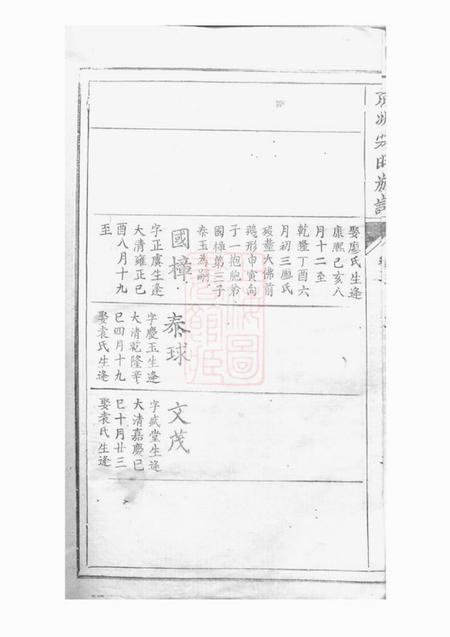 娶廖氏生逢
康熙己亥八
月十二至
乾隆丁酉六
月初三廖氏
大佛前
形申寅向
子一抱胞弟
國權第三子
泰玉為嗣
國樟
字正虞生逢
大清雍正己
酉八月十九
至
泰球
字慶玉生逢
大清乾隆辛
巳四月十九
娶袁氏生逢
文茂
字盛堂生逢
大清嘉慶己
巳十月廿三
娶袁氏生逢